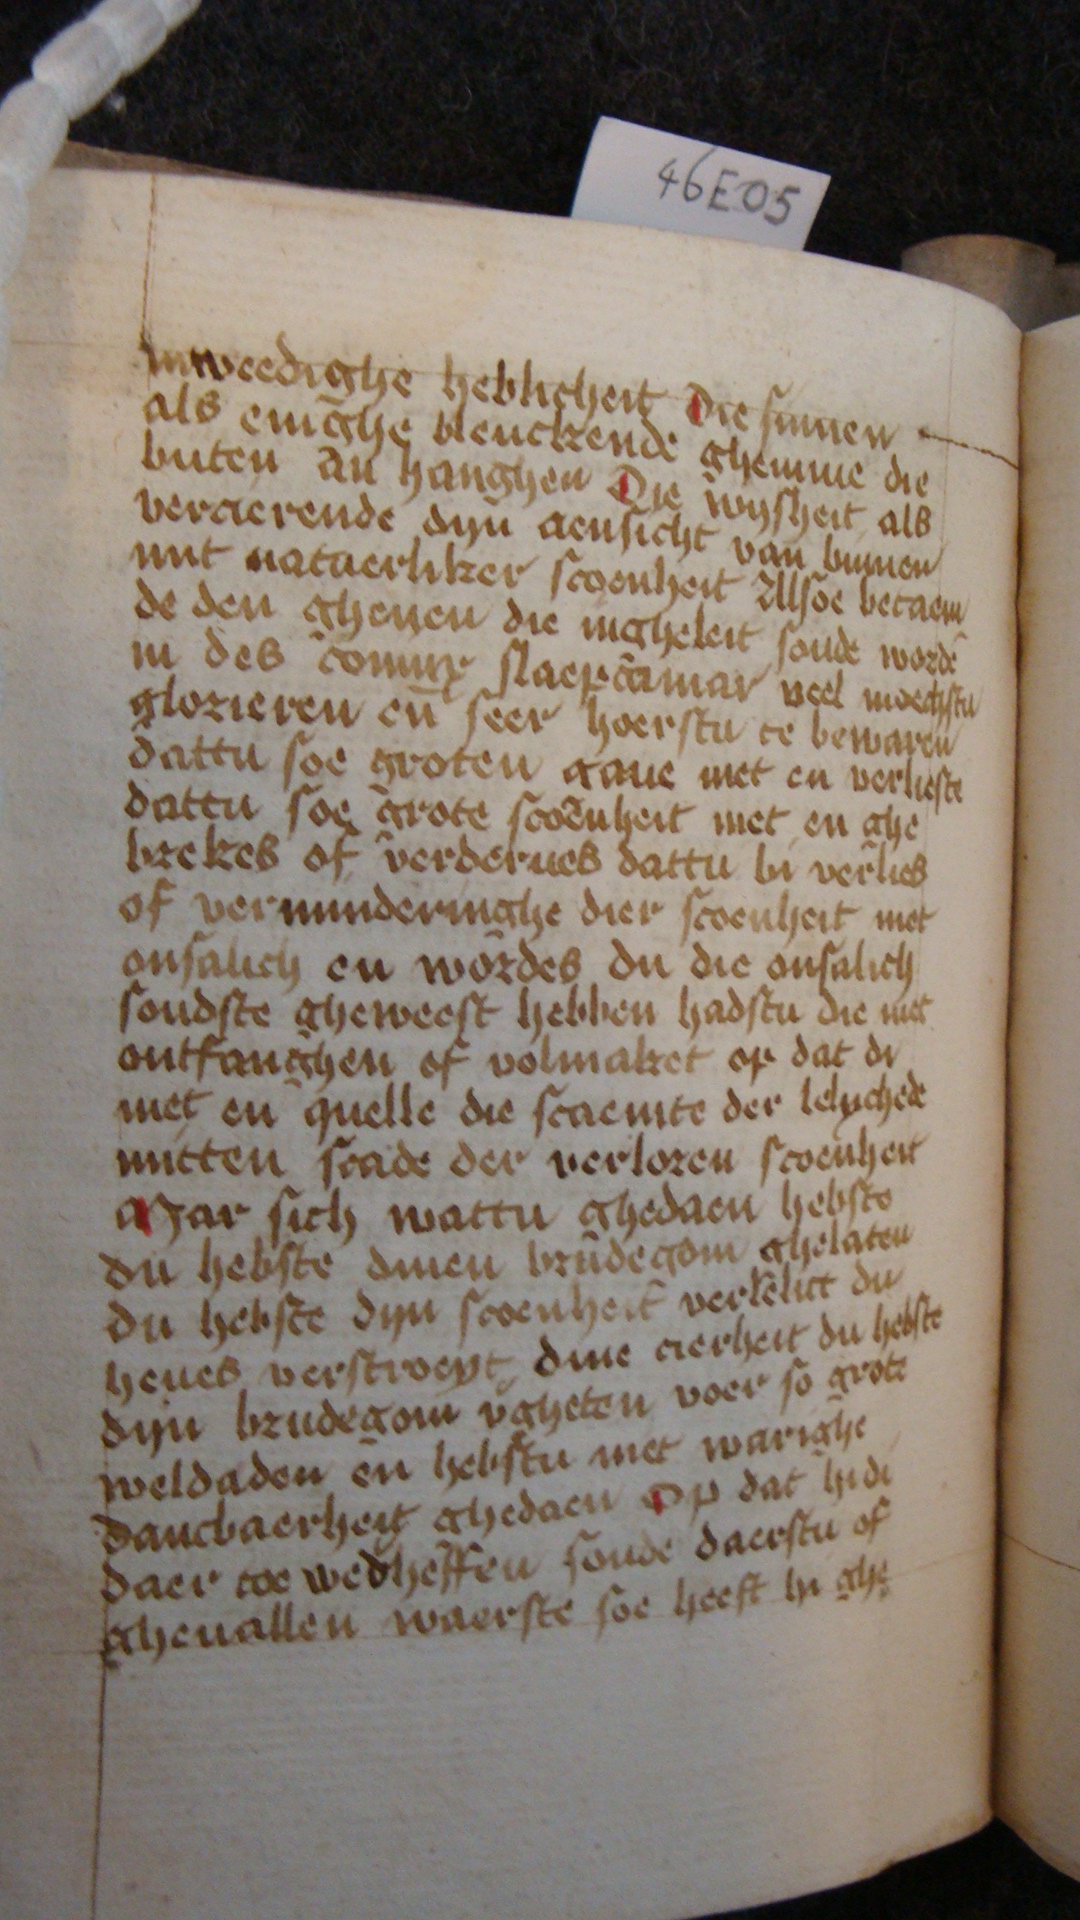 46E05
inweedighe heblicheit Die sinnen
als enighe blenckende ghemme die
buten an hanghen Die wysheit als
vercierende dijn aensicht van binnen
mit nataerliker scoenheit Alsoe betaem
de den ghenen die ingheleit soude wordē
in des conincx slaepcamar veel moechstu
glorieren en̄ seer hoerstu te bewaren
dattu soe groten gaue niet en verlieste
dattu soe grote scoenheit niet en ghe
brekes of verderues dattu bi verlies
of verminderinghe dier scoenheit niet
onsalich en wordes du die onsalich
soudste gheweest hebben hadstu die niet
ontfanghen of volmaket op dat di
niet en quelle die scaemte der lelychede
mitten scade der verloren scoenheit
Mar sich wattu ghedaen hebste
du hebste dinen brudegom ghelaten
du hebste dyn scoenheit verkelict du
heues verstroeyt dine cierheit du hebste
dijn brudegom v̄gheten voer so grote
weldaden en̄ hebstu niet warighe
dancbaerheit ghedaen Op dat hi di
daer toe wedheffen soude daerstu of
gheuallen waerste soe heeft hi ghe